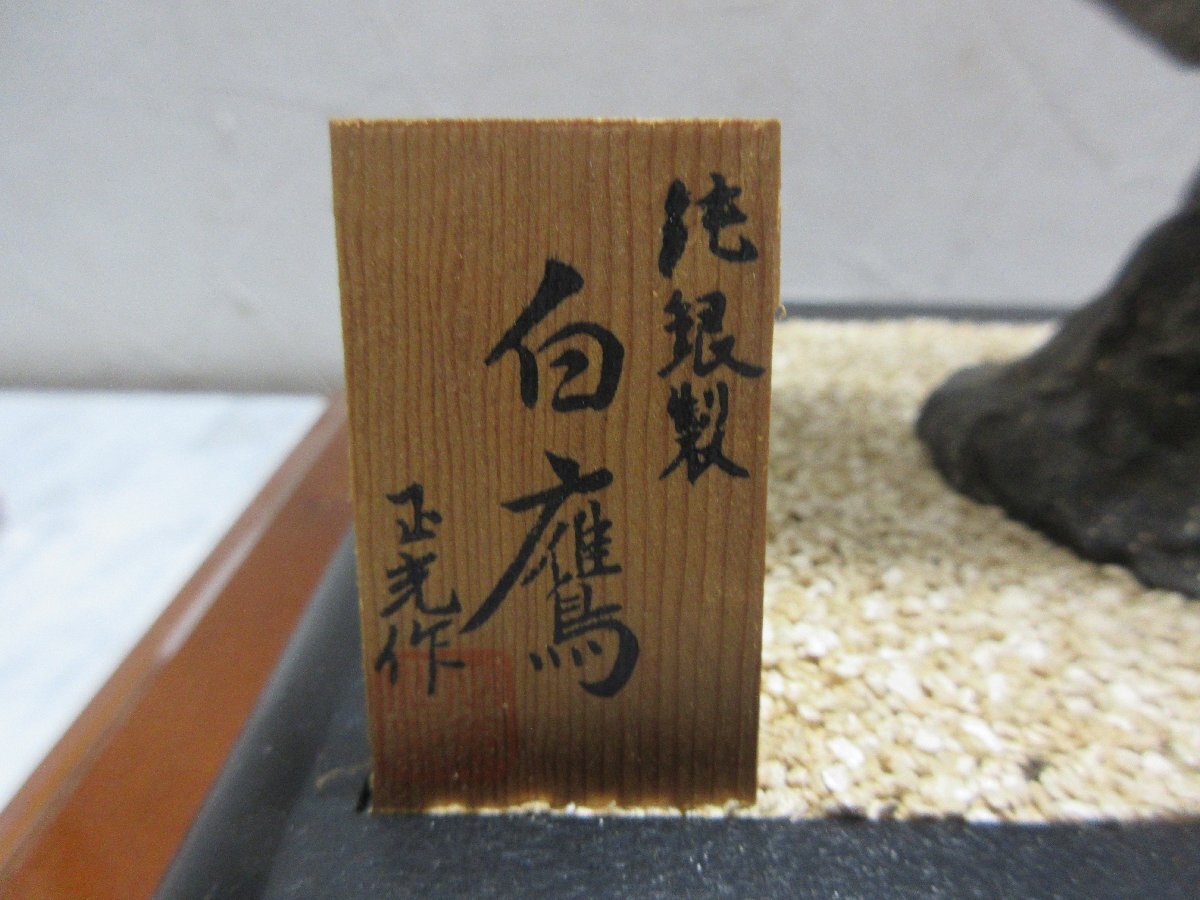 純銀製
白鷹
正光作